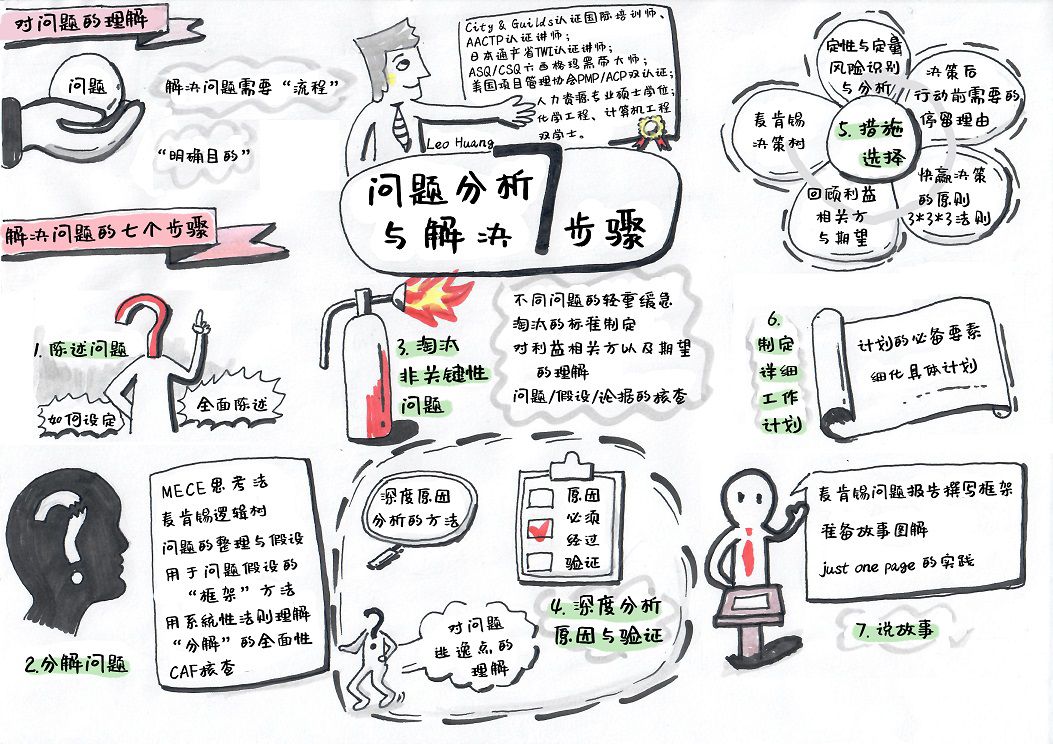 对问题的理解
问题
解决问题需要“流程”
“明确目的”
City & Guilds认证国际培训师、
AACTP认证讲师；
日本通产省TWI认证讲师；
ASQ/CSQ六西格玛黑带大师；
美国项目管理协会PMP/ACP双认证；
人力资源专业硕士学位；
化学工程、计算机工程
双学士。
Leo Huang
问题分析
与解决7步骤
解决问题的七个步骤
1. 陈述问题
如何设定
全面陈述
2.分解问题
MECE思考法
麦肯锡逻辑树
问题的整理与假设
用于问题假设的
“框架”方法
用系统性法则理解
“分解”的全面性
CAF核查
3. 淘汰
非关键性
问题
不同问题的轻重缓急
淘汰的标准制定
对利益相关方以及期望
的理解
问题/假设/论据的核查
4. 深度分析
原因与验证
深度原因
分析的方法
原因
必须
经过
验证
对问题
逃逸点的
理解
5. 措施
选择
定性与定量
风险识别
与分析
决策后
/行动前需要的
停留理由
快赢决策
的原则
3*3*3法则
回顾利益
相关方
与期望
麦肯锡
决策树
6.
制定
详细
工作
计划
计划的必备要素
细化具体计划
7. 说故事
麦肯锡问题报告撰写框架
准备故事图解
just one page的实践